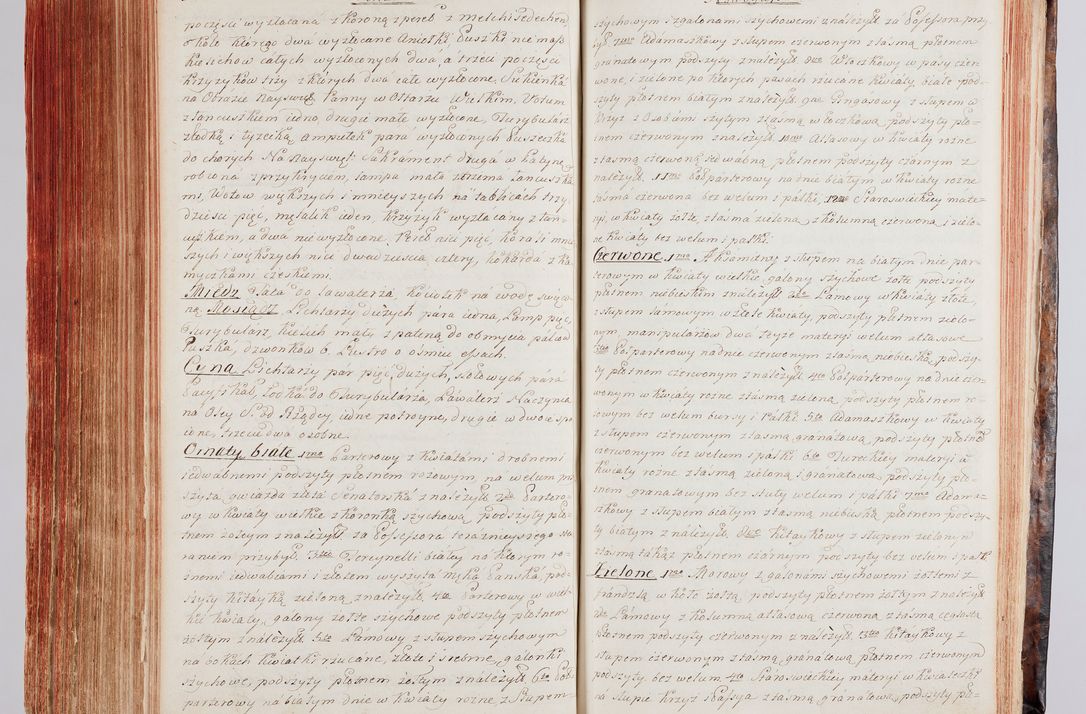 poczęści wyzłacana z koroną z pereł z melchisedechem,
około którego dwa wyzłacane Aniełki Puszki nie masz
kielichow całych wyzłoconych dwa, a trzeci poczęści
krzyzykow trzy z których dwa całe wyzłocone, Sukienka
na Obrazie Nayswięt Panny w Ołtarzu Wielkim, Votum
z łancuszkiem iedno, drugie małe wyzłocone, Turybularz
z łodką i łyzeczką ampułek para wyzłoconych Puszeczka
do chorych Na Nayswięt: Sakrament druga w
robiona z przykryciem, lampa mała z trzema łancuszka
mi, Wotow większych i mnieyszych na tablicach trzy-
dzieści pięć, medalik ieden, krzyzyk wyzłacany z łan-
cuszkiem, a dwa nie wyzłocone, Pereł nici pięć, korali mniey
szych i większych nici dwadzieścia cztery, kokarda z ka-
myczkami czeskiemi.
Miedz Para do Lawaterza, kociołek na wodę święco
ną Mosiądz Lichtarzy duzych para iedna, Lamp pięć,
Turybularz, kielich mały z pateną do obmycia palcow
Puszka, dzwonkow 6. Lustro o osmiu
Cyna Lichtarzy par pięć duzych, stołowych para
Pacyfikał, Łodka do Turybularza, Lawaterz Naczynia
na Oley S. iedne potroyne, drugie w dwoie
ione, trzecie dwa osobne
Ornaty białe 1mo Parterowy z kwiatami drobnemi
iedwabnemi podszyty płotnem rozowym, na welum
szyta gwiazda złota Senatorska z nalezyt: 2do Partero-
wy w kwiaty wielkie z koronką szychową, podszyty płó-
tnem zołtym z nalezyt: za Possessora terazniejszego sta
raniem przybył 3tio Tercynelli białey na którym ro-
znemi iedwabiami i złotem wyszyta męka Panska, pod-
szyty kitayką zieloną z nalezyt: 4to Parterowy w wiel-
kie kwiaty, galony zołte szychowe podszyty płotnem
zołtym z nalezyt: 5to Lamowy z słupem szychowym
na bokach kwiatki rzucane, złote i srebrne, galonki
szychowe, podszyty płotnem zołtym z nalezyt: 6to Poł-
parterowy na białym dnie w kwiaty rozne, z słupem
szychowym i z galonami szychowemi z nalezyt: za Possessora przy
był 7mo Adamaszkowy z słupem czerwonym z tasmą płotnem
granatowym podszyty z nalezyt: 8vo Włoczkowy w pasy czer-
wone, i zielone po ktorych pasach rzucane kwiaty, białe pod-
szyty płotnem białym z nalezyt: 9no z słupem w
krzyz z Osobami szytym z tasmą włoczkową podszyty pło-
tnem czerwonym z nalezyt: 10mo Atłasowy w kwiaty rozne
z tasmą czerwoną iedwabną płotnem podszyty czarnym z
nalezyt: 11mo Połparterowy na dnie białym w kwiaty rozne
tasma czerwona bez welum i palki, 12mo Staroswieckiey mate-
ryi w kwiaty zołte, z tasmą zieloną, z kolumną czerwoną, i zielo-
ne kwiaty bez welum i palki.
Czerwone 1mo Axamitny z słupem na białym dnie par-
terowym w kwiaty wielkie galony szychowe zołte podszyty
płatnem niebieskim z nalezyt: 2do Lamowy w kwiaty złote,
z słupem lamowym w złote kwiaty, podszyty płotnem zielo-
nym, manipularzow dwa teyze materyi welum atłasowe
3tio Połparterowy na dnie czerwonym z tasmą niebieską, podszy-
ty płotnem czerwonym z nalezyt: 4to Połparterowy na dnie czer-
wonym w kwiaty rozne z tasmą zieloną, podszyty płotnem ro-
zowym bez welum bursy i palki 5to Adamaszkowy w kwiaty
z słupem czerwonym z tasmą granatową, podszyty płotnem
czerwonym bez welum i palki 6to Tureckiey materyi w
kwiaty rozne z tasmą zieloną i granatową, podszyty pło-
tnem granatowym bez stuły welum i palki 7mo Adama-
szkowy z słupem białym z tasmą niebieską płotnem podszy-
ty białym z nalezyt: 8vo kitaykowy z słupem zielonym
z tasmą taką z płotnem czarnym podszyty bez welum i palki
Zielone 1mo Morowy z galonami szychowemi zołtemi z
frandzlą w koło zołtą, podszyty płotnem zołtym z nalezyt:
2do Lamowy z kolumną atłasową czerwoną z tasmą ceglastą
płotnem podszyty czerwonym z nalezyt: 3tio kitaykowy z
słupem czerwonym z tasmą granatową płotnem czerwonym
podszyty bez welum 4to Staroswieckiey materyi w kwiateczki
na słupie krzyz z tasmą granatową, podszyty pło-